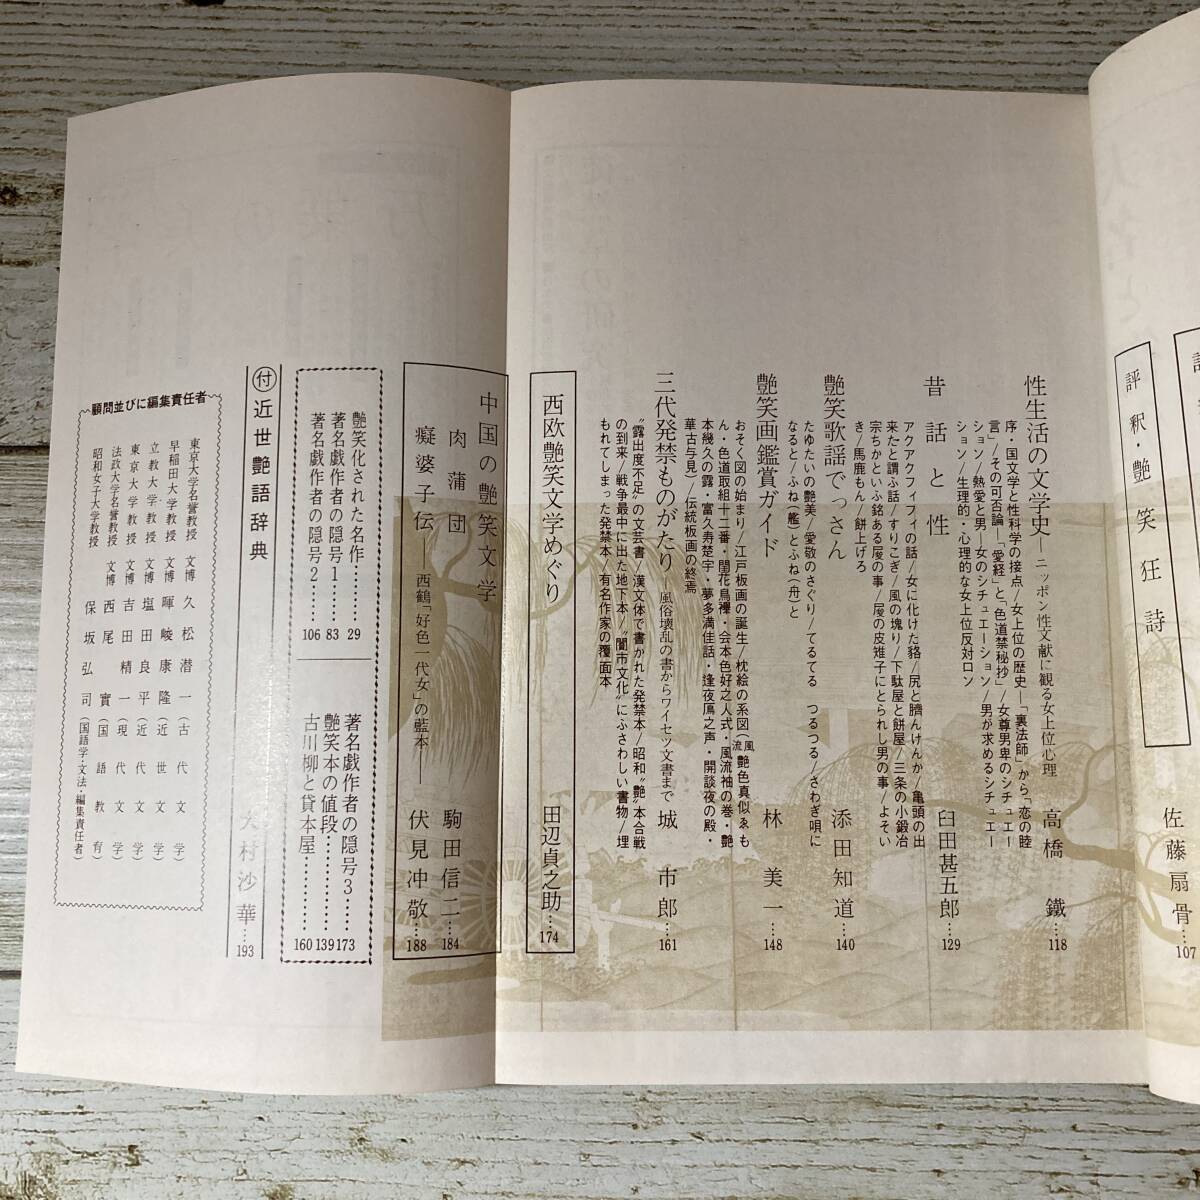 評釈・艶笑狂詩
佐藤扇骨…107
性生活の文学史―ニッポン性文献に観る女上位心理 高橋 鐵…118
序・国文学と性科学の接点/女上位の歴史―「裏法師」から「恋の睦
言」/その可否論―「愛経」と「色道禁秘抄」/女尊男卑のシチュエー
ション/熱愛と男―女のシチュエーション/男が求めるシチュエー
ション/生理的・心理的な女上位反対ロン
昔話と性 臼田甚五郎…129
アクアクフィフィの話/女に化けた貉/尻と臍んけんか/亀頭の出
来たと謂ふ話/すりこぎ/風の塊り/下駄屋と餅屋/三条の小鍛冶
宗ちかといふ銘ある屁の事/屁の皮雉子にとられし男の事/よそい
き/馬鹿もん/餅上げろ
艶笑歌謡でっさん 添田知道…140
たゆたいの艶美/愛敬のさぐり/てるてる つるつる/さわぎ唄に
なると/ふね(艦)とふね(舟)と
艶笑画鑑賞ガイド 林 美一…148
おそく図の始まり/江戸板画の誕生/枕絵の系図(風流艶色真似ゑも
ん・色道取組十二番・閨花鳥襷・会本色好之人式・風流袖の巻・艶
本幾久の露・富久寿楚宇・夢多満佳話・逢夜鳫之声・開談夜の殿・
華古与見)/伝統板画の終焉
三代発禁ものがたり―風俗壊乱の書からワイセツ文書まで 城 市郎…161
"露出度不足"の文芸書/漢文体で書かれた発禁本/昭和"艶"本合戦
の到来/戦争最中に出た地下本/"闇市文化"にふさわしい書物/埋
もれてしまった発禁本/有名作家の覆面本
西欧艶笑文学めぐり 田辺貞之助…174
中国の艶笑文学
肉蒲団 駒田信二…184
癡婆子伝――西鶴「好色一代女」の藍本―― 伏見冲敬…188
艶笑化された名作……29
著名戯作者の隠号1……83
著名戯作者の隠号2……106
著名戯作者の隠号3……173
艶笑本の値段……139
古川柳と貸本屋……160
付 近世艶語辞典 大村沙華…193
顧問並びに編集責任者
東京大学名誉教授 文博 久松潜一(古代文学)
早稲田大学教授 文博 暉峻康隆(近世文学)
立教大学教授 文博 塩田良平(近代文学)
東京大学教授 文博 吉田精一(現代文学)
法政大学名誉教授 文博 西尾實(国語教育)
昭和女子大学教授 保坂弘司(国語学・文法・編集責任者)